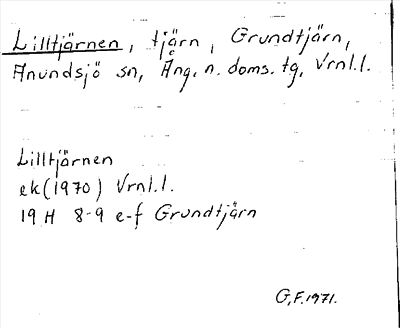 Lilltjärnen, tjärn, Grundtjärn,
Anundsjö sn, Ång. n. doms. tg, Vrnl.l.
Lilltjärnen
ek (1970) Vrnl.l.
19 H 8-9 e-f Grundtjärn
G.F. 1971.